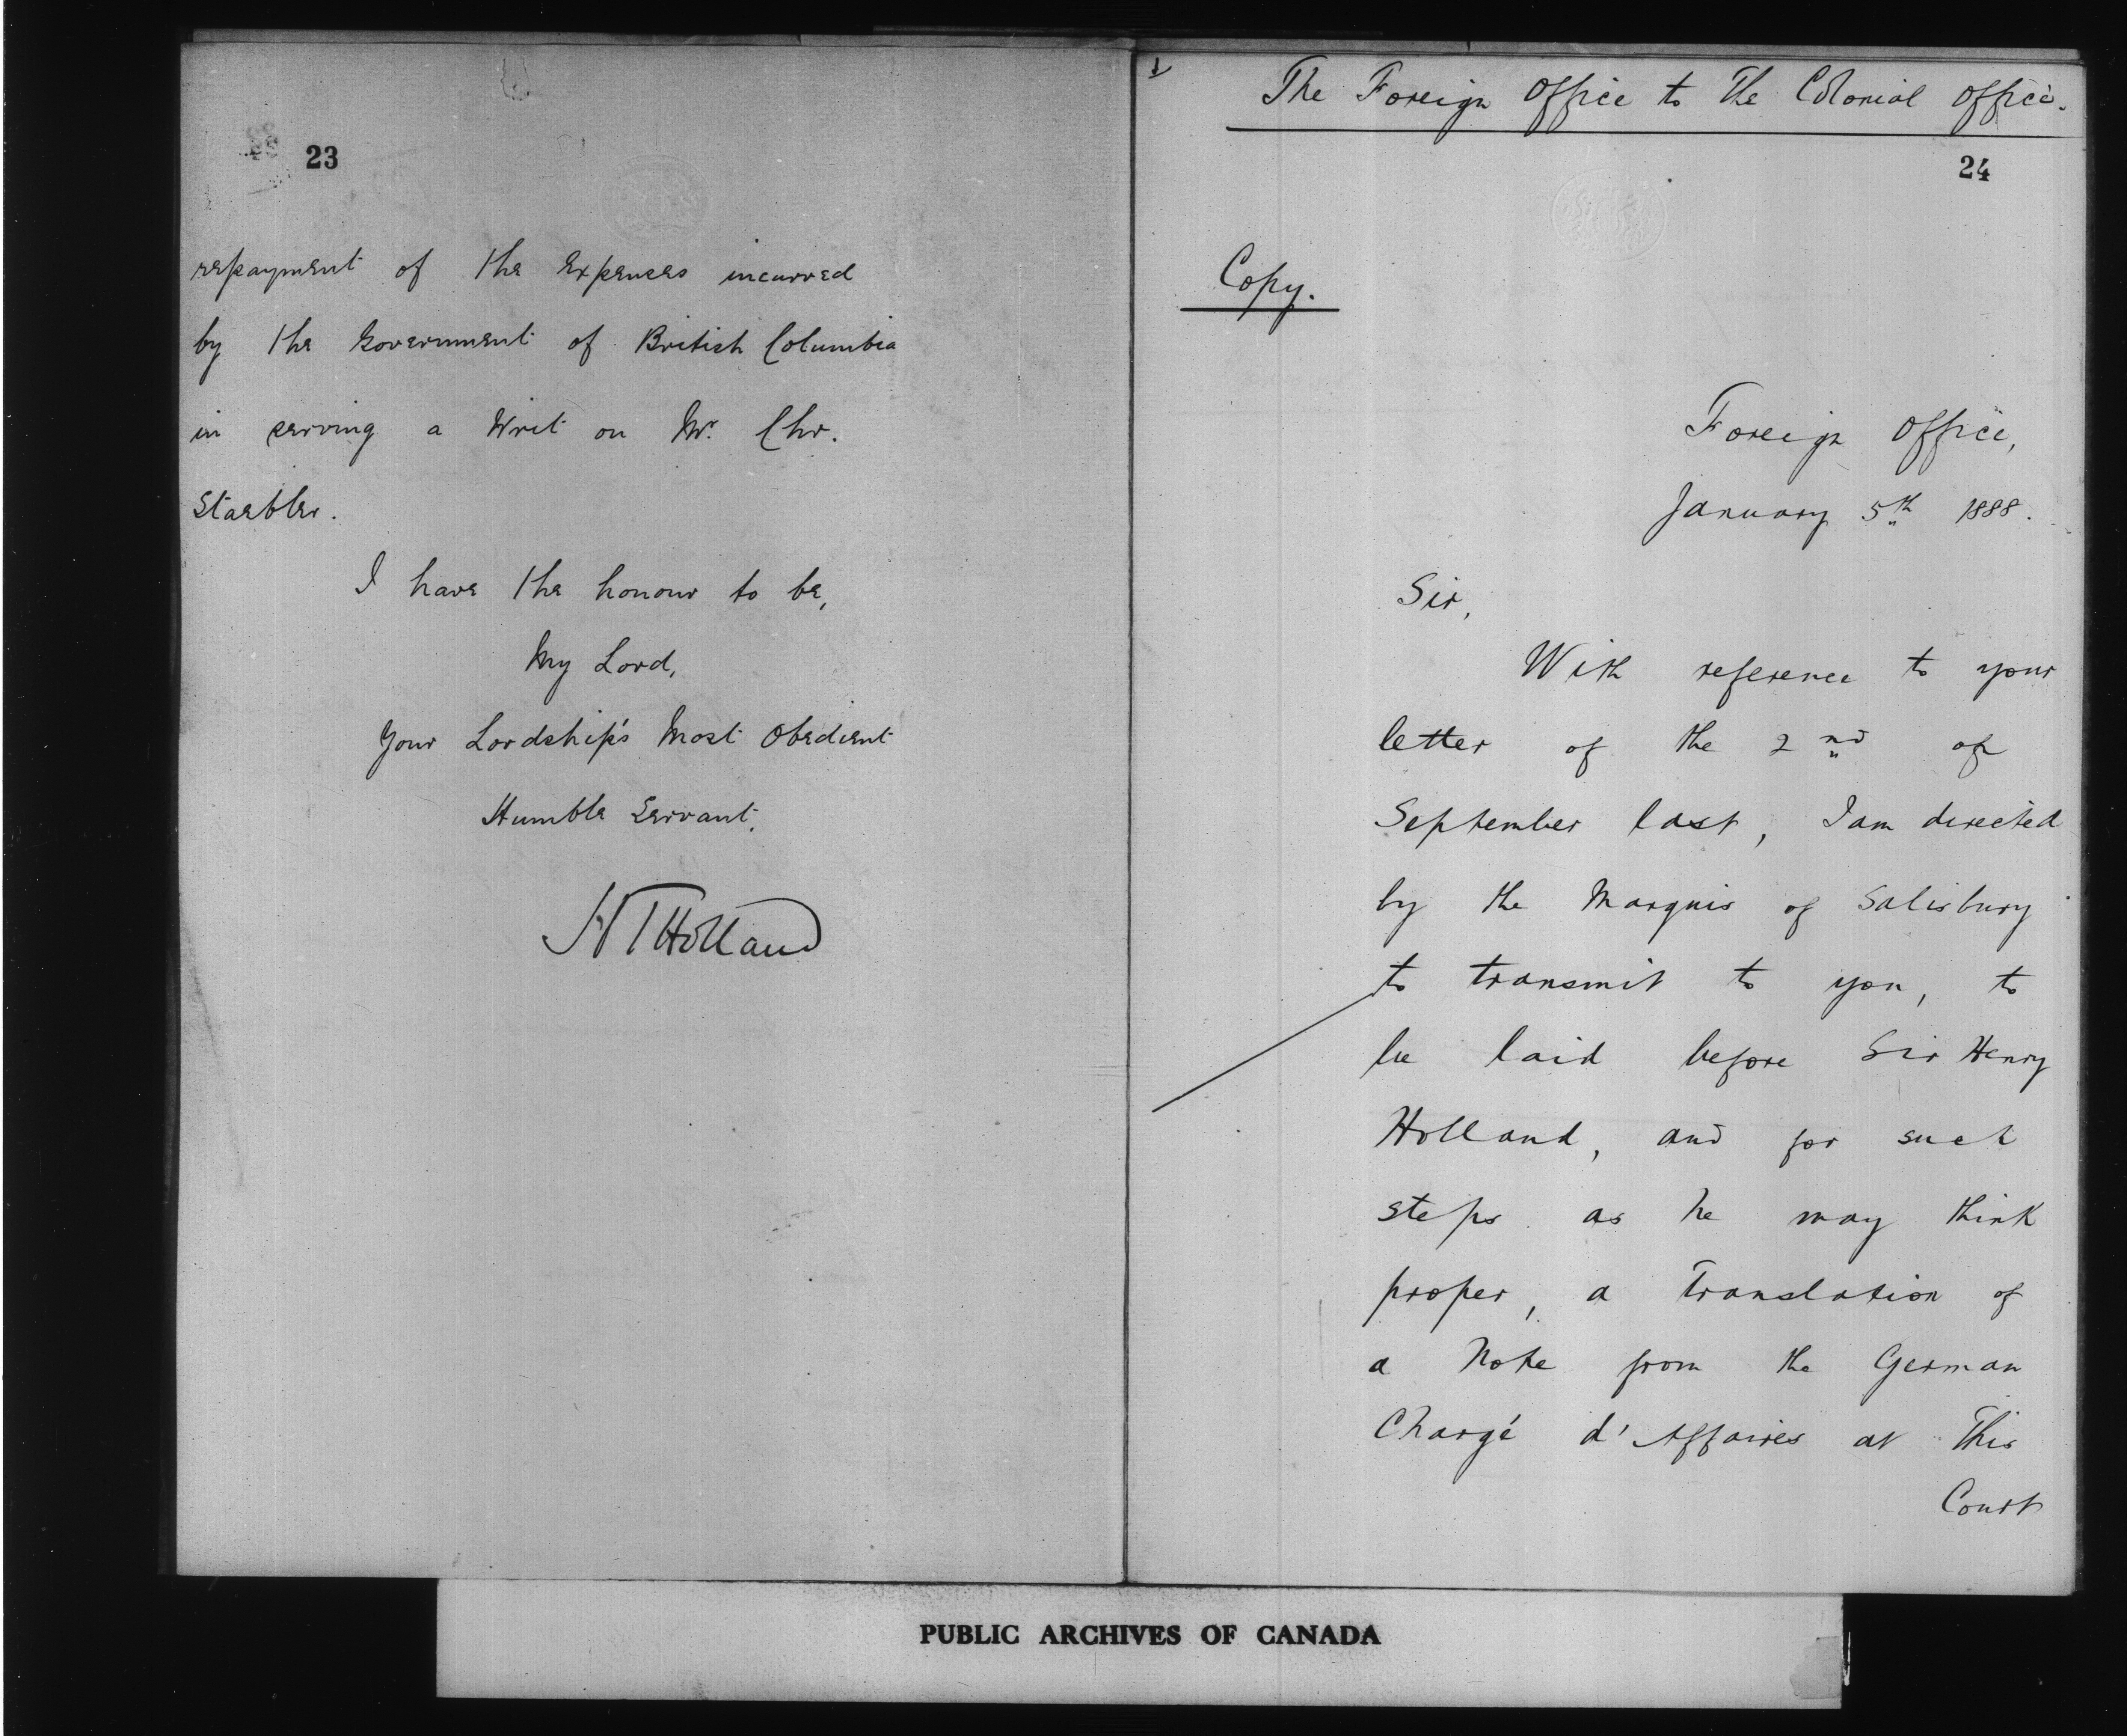 23
repayment of the Expenses incurred
by the Government of British Columbia
in serving a Writ on Mr. Chr.
Staebler.
I have the honour to be,
My Lord,
Your Lordship's Most Obedient
Humble Servant,
HTHolland
The Foreign Office to The Colonial Office.
24
Copy.
Foreign Office,
January 5th 1888.
Sir,
With reference to your
letter of the 2nd of
September last, I am directed
by the Marquis of Salisbury
to transmit to you, to
be laid before Sir Henry
Holland, and for such
steps as he may think
proper, a Translation of
a Note from the German
Chargé d'Affaires at This
Court
PUBLIC ARCHIVES OF CANADA